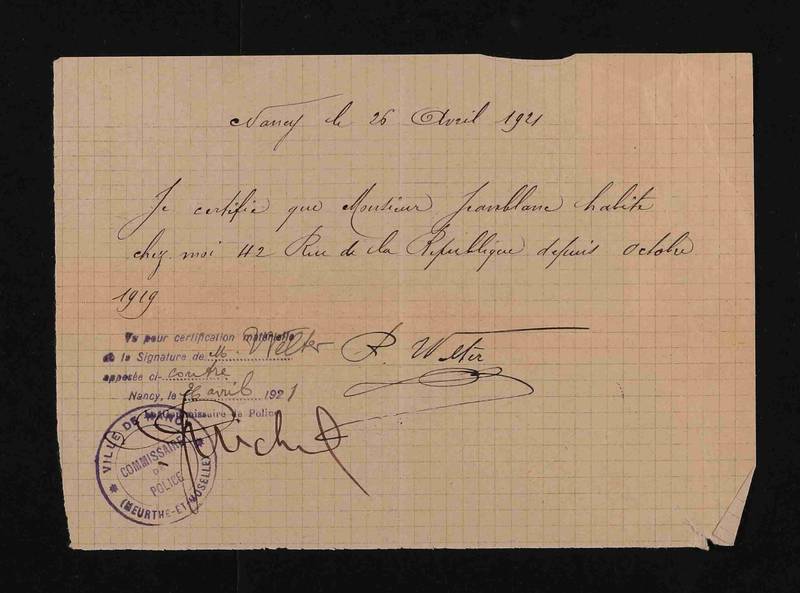 Nancy le 26 Avril 1921
Je certifie que Monsieur Jeanblanc habite
chez moi 42 Rue de la République depuis octobre
1919
Vu pour certification matérielle
de la Signature de M. Welter
apposée ci-contre
Nancy, le 26 avril 1921
Le Commissaire de Police
P. Welter
VILLE DE NANCY
COMMISSAIRE
DE
POLICE
(MEURTHE-ET-MOSELLE)